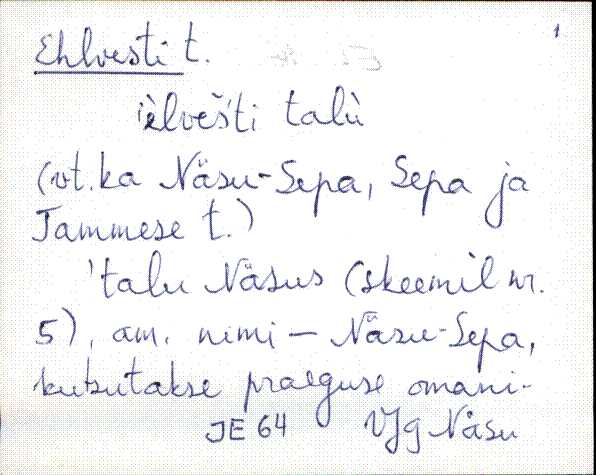 1
Ehlvesti t.
ièlvešti talù
(vt. ka Näsu-Sepa, Sepa ja
Tammese t.)
'talu Näsus (skeemil nr.
5), am. nimi – Näsu-Sepa,
kutsutakse praeguse omani-
JE 64 VJg Näsu